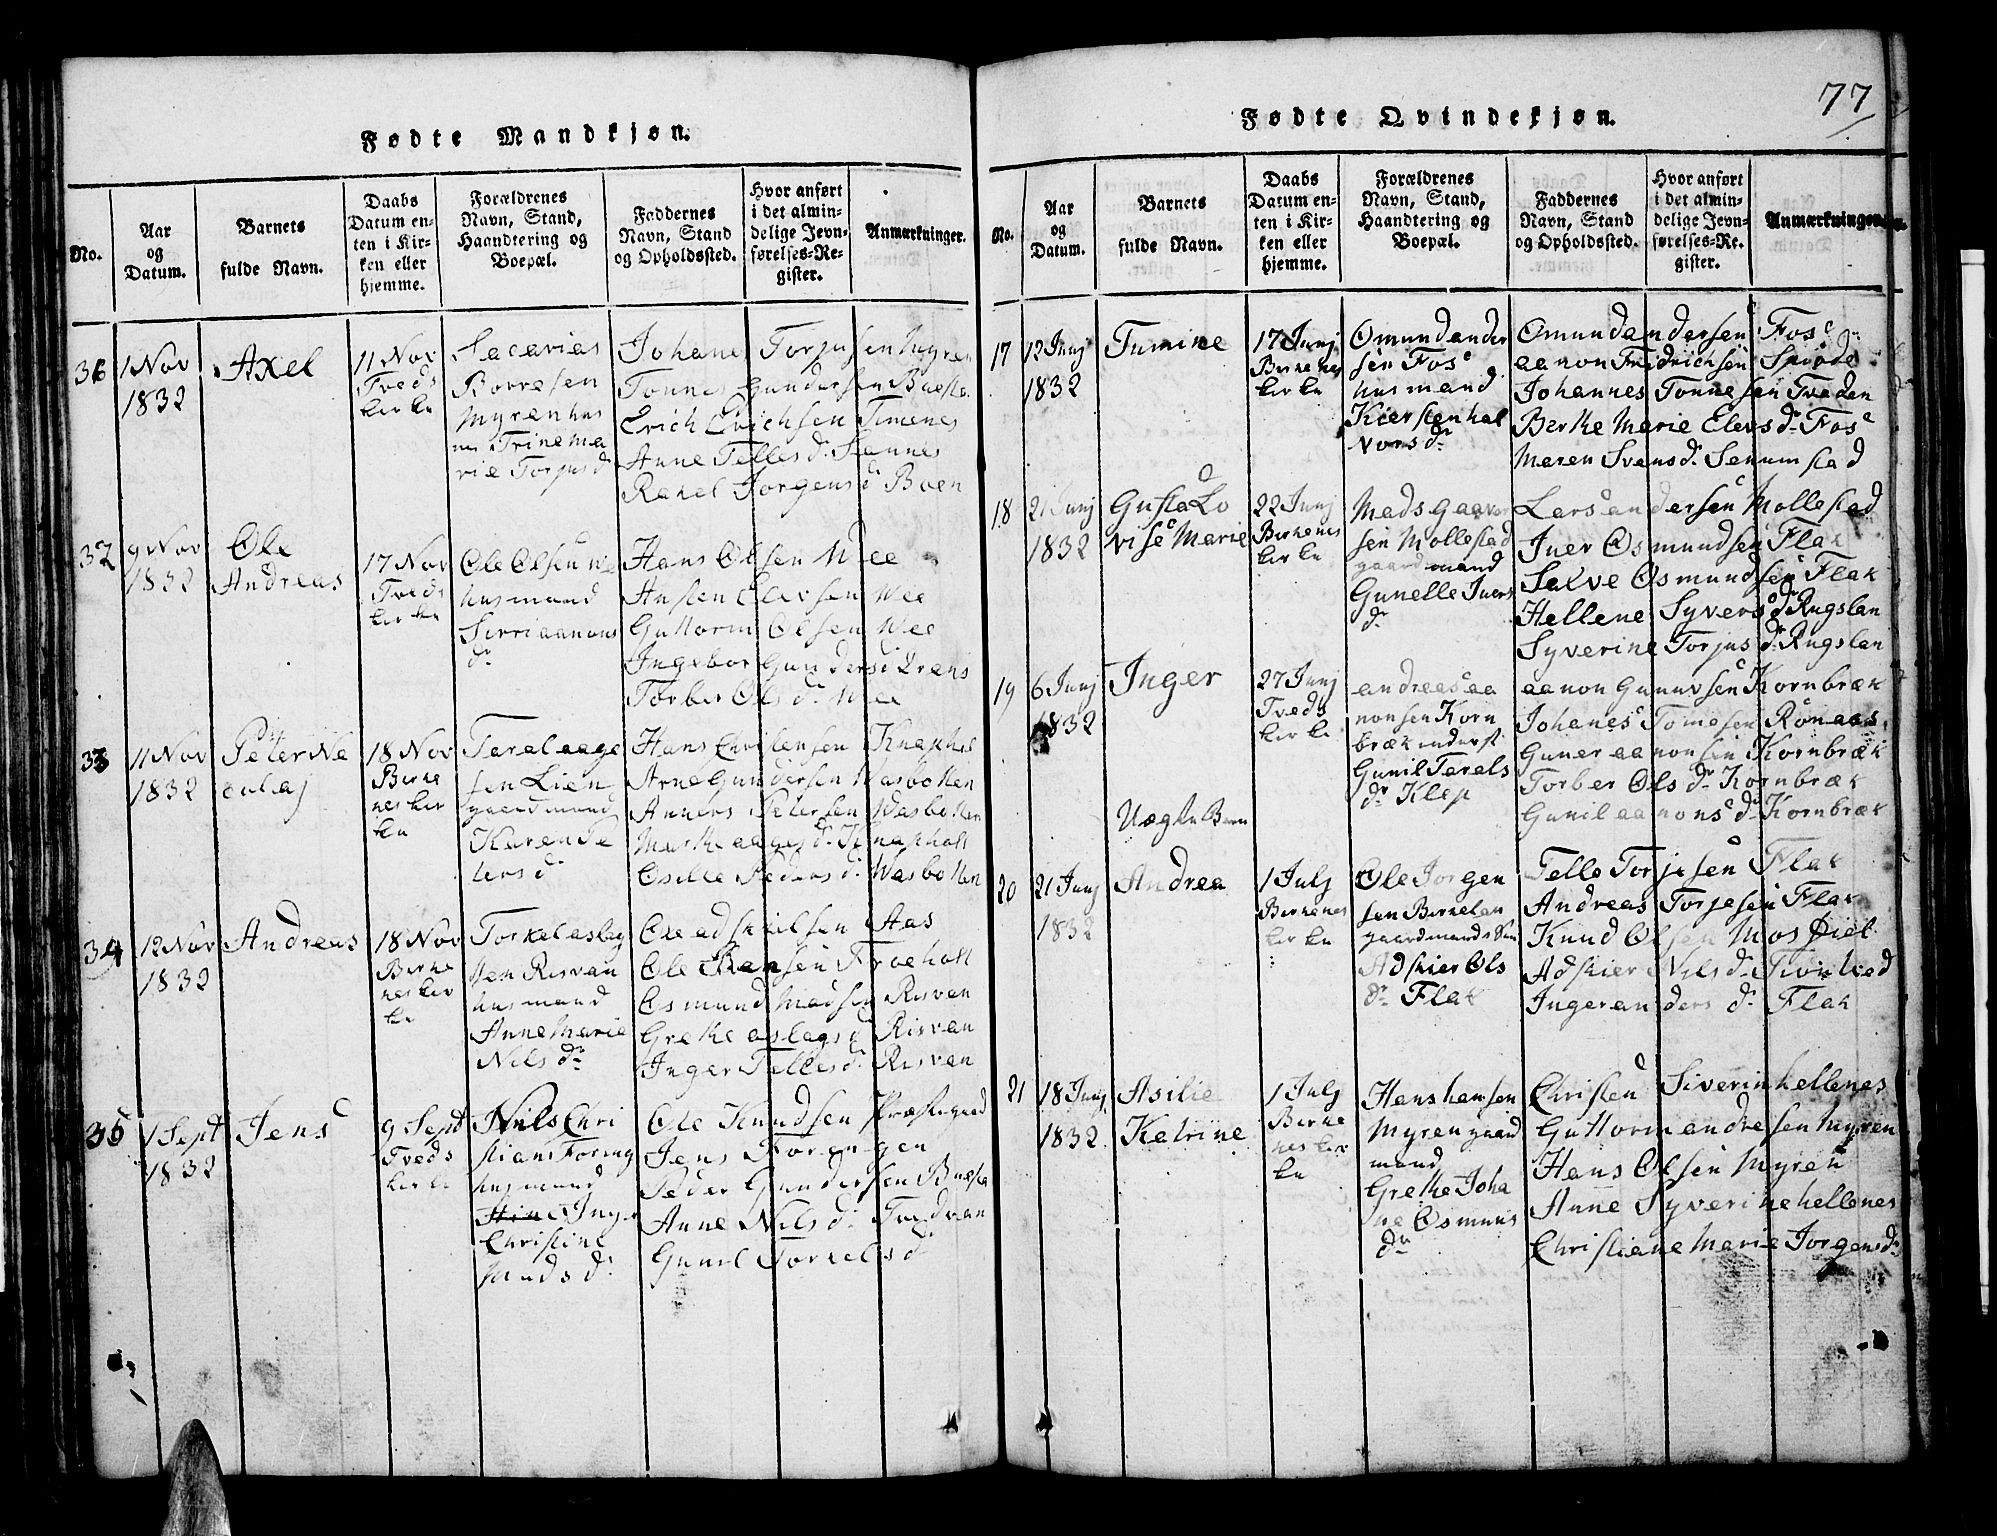 77
Fødte Mandkjøn.
No.
Aar og Datum.
Barnets fulde Navn.
Daabs Datum enten i Kirken eller hjemme.
Forældrenes Navn, Stand, Haandtering og Boepæl.
Faddernes Navn, Stand og Opholdssted.
Hvor anført i det almindelige Jevnførelses-Register.
Anmærkninger.
1 Nov
1832
Axel
11 Nov
Tveds
kerke
Sacarias
Borresen
Myren hus
Trine Ma
rie Torjus d.
Johanes Torjusen Myren
Tonnes Gundersen
Erich Erichsen Timenes
Anne Telles d.
Rakel Jorgens d. Boen
32
9 Nov
1832
Ole
Andreas
17 Nov
Tveds
kerke
Ole Olsen We
husmand
Sirri aanons
dr
Hans Olsen Wee
Ansten Elevsen Wee
Guttorm Olsen Wee
Ingebor Gunders d
Torber Ols d. Wee
33
11 Nov
1832
Peter Ne
colaj
18 Nov
Berke
nes ker
ke
Taral aage
sen Lien
gaardmand
Karen Pe
ters d
Hans Christensen
Arne Gundersen Wasbotten
Anners Petersen Wasbotten
Marthe aages d. Knapholt
Osille Peders d. Wasbotten
34
12 Nov
1832
Andreas
18 Nov
Berke
nes ker
ke
Torkel aslag
sen Risvan
husmand
Anne Marie
Nils dr
Ole adskilsen Aas
Ole Hansen Froeholt
Osmund Madsen Risvan
Grethe aslags d Risvan
Inger Telles d. Risvan
35
1 Sept
1832
Jens
9 Sept
Tveds
kerke
Nils Chri
stians Foreng
husmand
Inge
Christine
Mads d.
Ole Knudsen Præstegaard
Jens Forengen
Peder Gundersen
Anne Nils d. Tvedvan
Gunil Torkels d
Fødte Qvindekjøn.
No.
Aar og Datum.
Barnets fulde Navn.
Daabs Datum enten i Kirken eller hjemme.
Forældrenes Navn, Stand, Haandtering og Boepæl.
Faddernes Navn, Stand og Opholdssted.
Hvor anført i det almindelige Jevnførelses-Register.
Anmærkninger.
17
12 Junj
1832
Tumine
17 Junj
Berkenes
kerke
Omund ander
sen Fos
husmand
Kiersten hal
vors dr
Omund andersen Fos
aanon Fridrichsen
Johannes Tonnesen Tveden
Berthe Marie Elevs dr Fos
Maren Svens d. Senumstad
18
21 Junj
1832
Gusta Lo
vise Marie
22 Junj
Berkenes
kerke
Mads Gaaver
sen Mollestad
gaardmand
Gunelle Juers
dr
Lars andersen Mollestad
Juer Osmundsen Flak
Salve Osmundsen Flak
Hellene Syvers dr Rugslan
Syverine Torjus dr Rugslan
19
6 Junj
1832
Inger
Uægte Barn
27 Junj
Tveds
kerke
andreas aa
nonsen Korn
bræk inderst
Gunil Tarals
dr Klep
aanon Gunuvsen Kornbræk
Johanes Tomesen Rønaas
Guner aanonsen Kornbræk
Torber Ols dr Kornbræk
Gunil aanons d. Kornbræk
20
21 Junj
1832
Andrea
1 Julj
Berkenes
kerke
Ole Jorgen
sen Berkelan
gaardmands Søn
Adskier Ols
dr Flak
Telle Torjesen Flak
Andreas Torjesen Flak
Knud Olsen Mosfiel
Adskier Nils d. Tveitved
Inger anders d. Flak
21
18 Junj
1832.
Asilie
Katrine
1 Julj
Berke
nes ker
ke
Hans hansen
Myren gaard
mand
Grethe Joha
ne Osmuns
dr
Christen Siverin hellenes
Guttorm andresen Myren
Hans Olsen Myren
Anne Syverine hellenes
Christiane Marie Jorgens dr